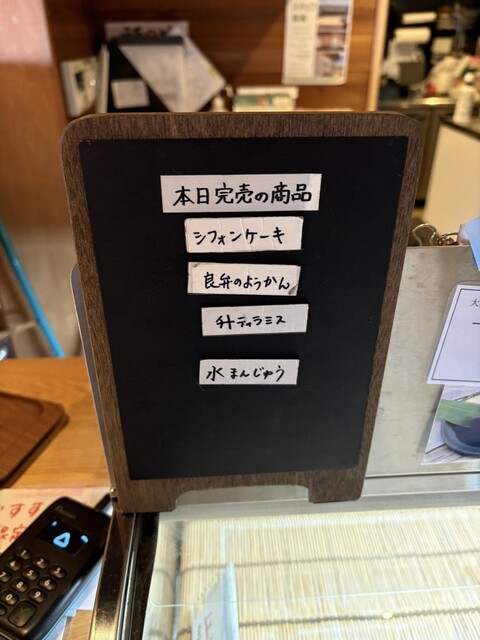 本日完売の商品
シフォンケーキ
良弁のようかん
升ティラミス
水まんじゅう